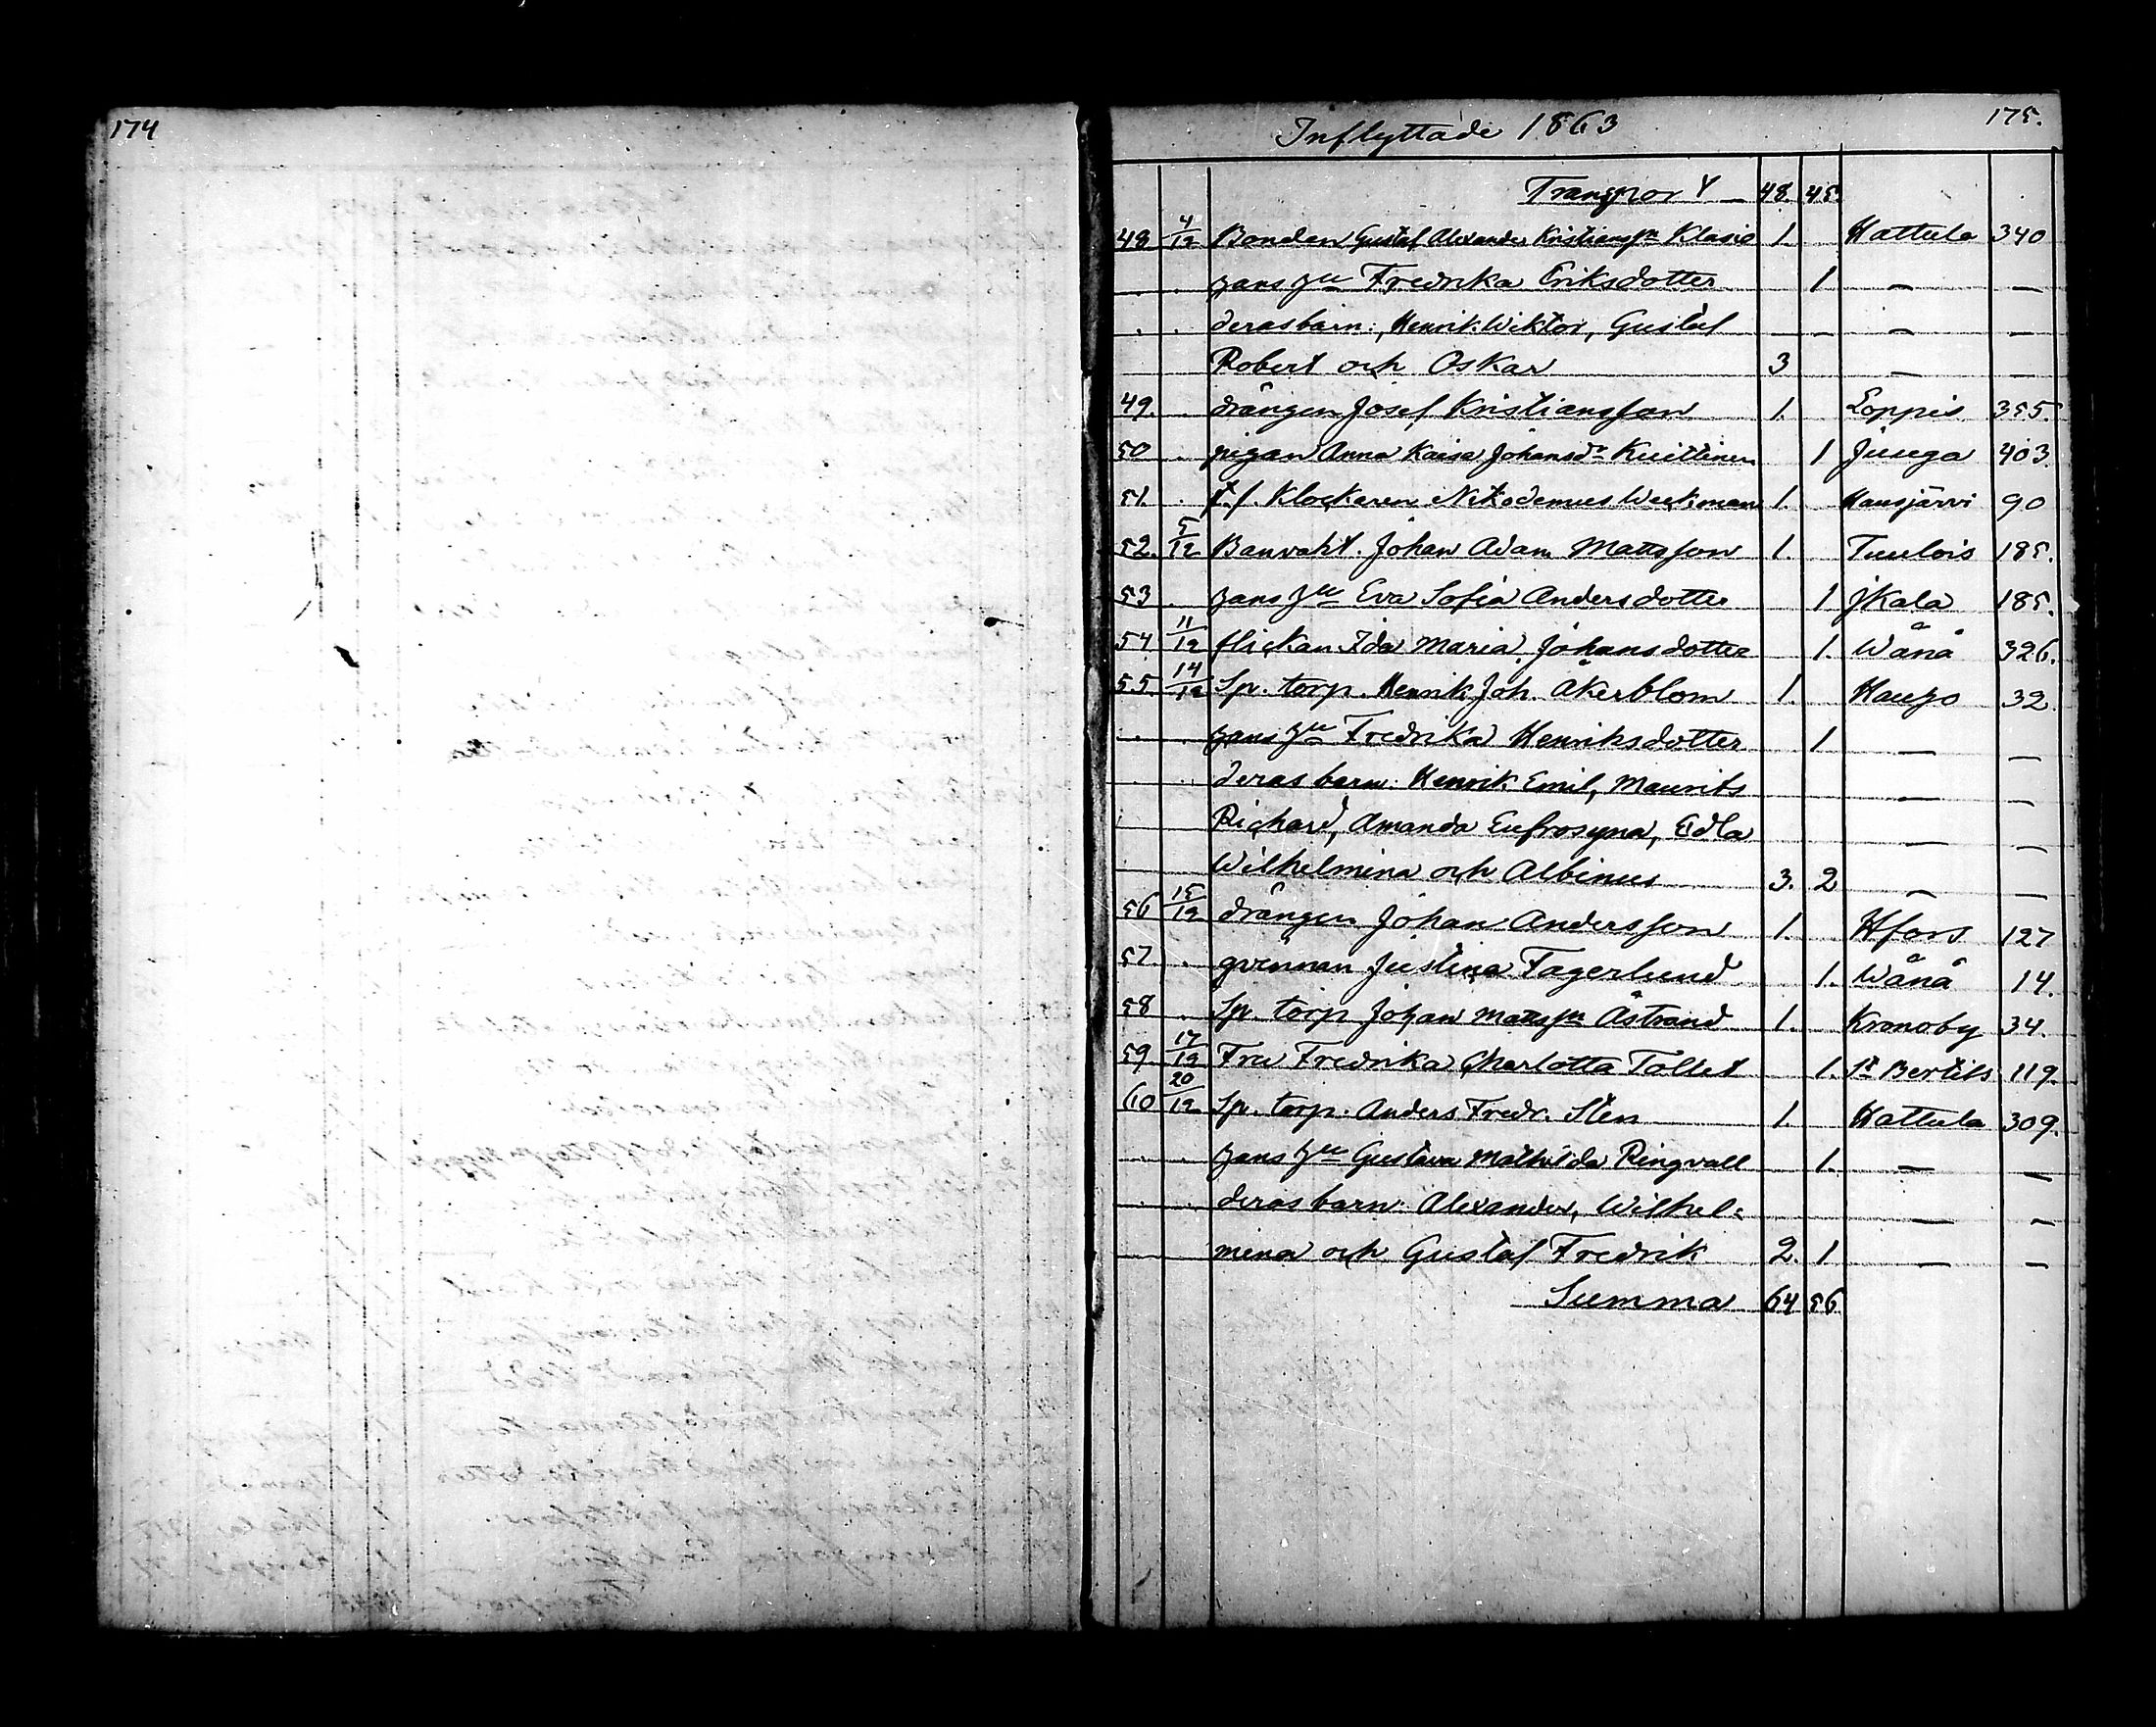 174
Inflyttade 1863 175.
Transport 48. 45.
48 4/12 Bonden Gustaf Alexander Kristianss:n Klasie 1. Hattula 340
hans hu Fredrika Eriksdotter 1 — —
deras barn: Henrik Wiktor, Gustaf — —
Robert och Oskar 3 — —
49. drängen Josef Kristiansson 1. Loppis 355.
50 pigan Anna Kaisa Johansdr Kuittinen 1 Juuga 403
51. f.f. Klockaren Nikodemus Weckman 1. Hausjärvi 90
52. 5/12 Banvakt. Johan Adam Mattsson 1. Tuulois 185.
53 hans hu Eva Sofia Andersdotter 1 jKala 185.
54 11/12 flickan Ida Maria Johansdotter 1. Wånå 326.
55. 14/12 Sp. torp. Henrik Joh. Åkerblom 1. Hauho 32
hans hu Fredrika Henriksdotter 1 — —
deras barn: Henrik Emil, Maurits — —
Richard, Amanda Eufrosyna, Edla — —
Wilhelmina och Albinus 3. 2 — —
56 15/12 drängen Johan Andersson 1. Hfors 127
57. qvinnan Justina Fagerlund 1. Wånå 14.
58 Sp. torp Johan Mattss:n Åstrand 1. Kronoby 34.
59 17/12 Fru Fredrika Charlotta Tollet 1. St Bertils 119.
60 20/12 Sp. torp. Anders Fredr. Sten 1. Hattula 309.
hans hu Gustava Mathilda Ringvall 1. — —
deras barn: Alexander, Wilhel- — —
mina och Gustaf Fredrik 2. 1 — —
Summa 64 56